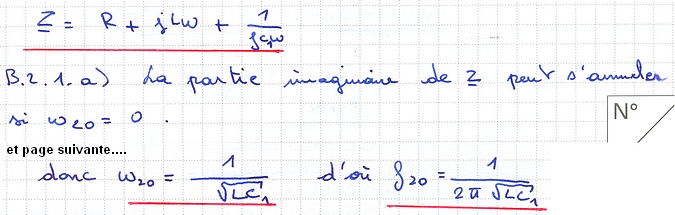 Z = R + jLω + 1/(jC₁ω)
B.2.1.a) La partie imaginaire de Z peut s'annuler
si ω₂₀ = 0 .
N°
et page suivante....
donc ω₂₀ = 1/√(LC₁) d'où f₂₀ = 1/(2π √(LC₁))